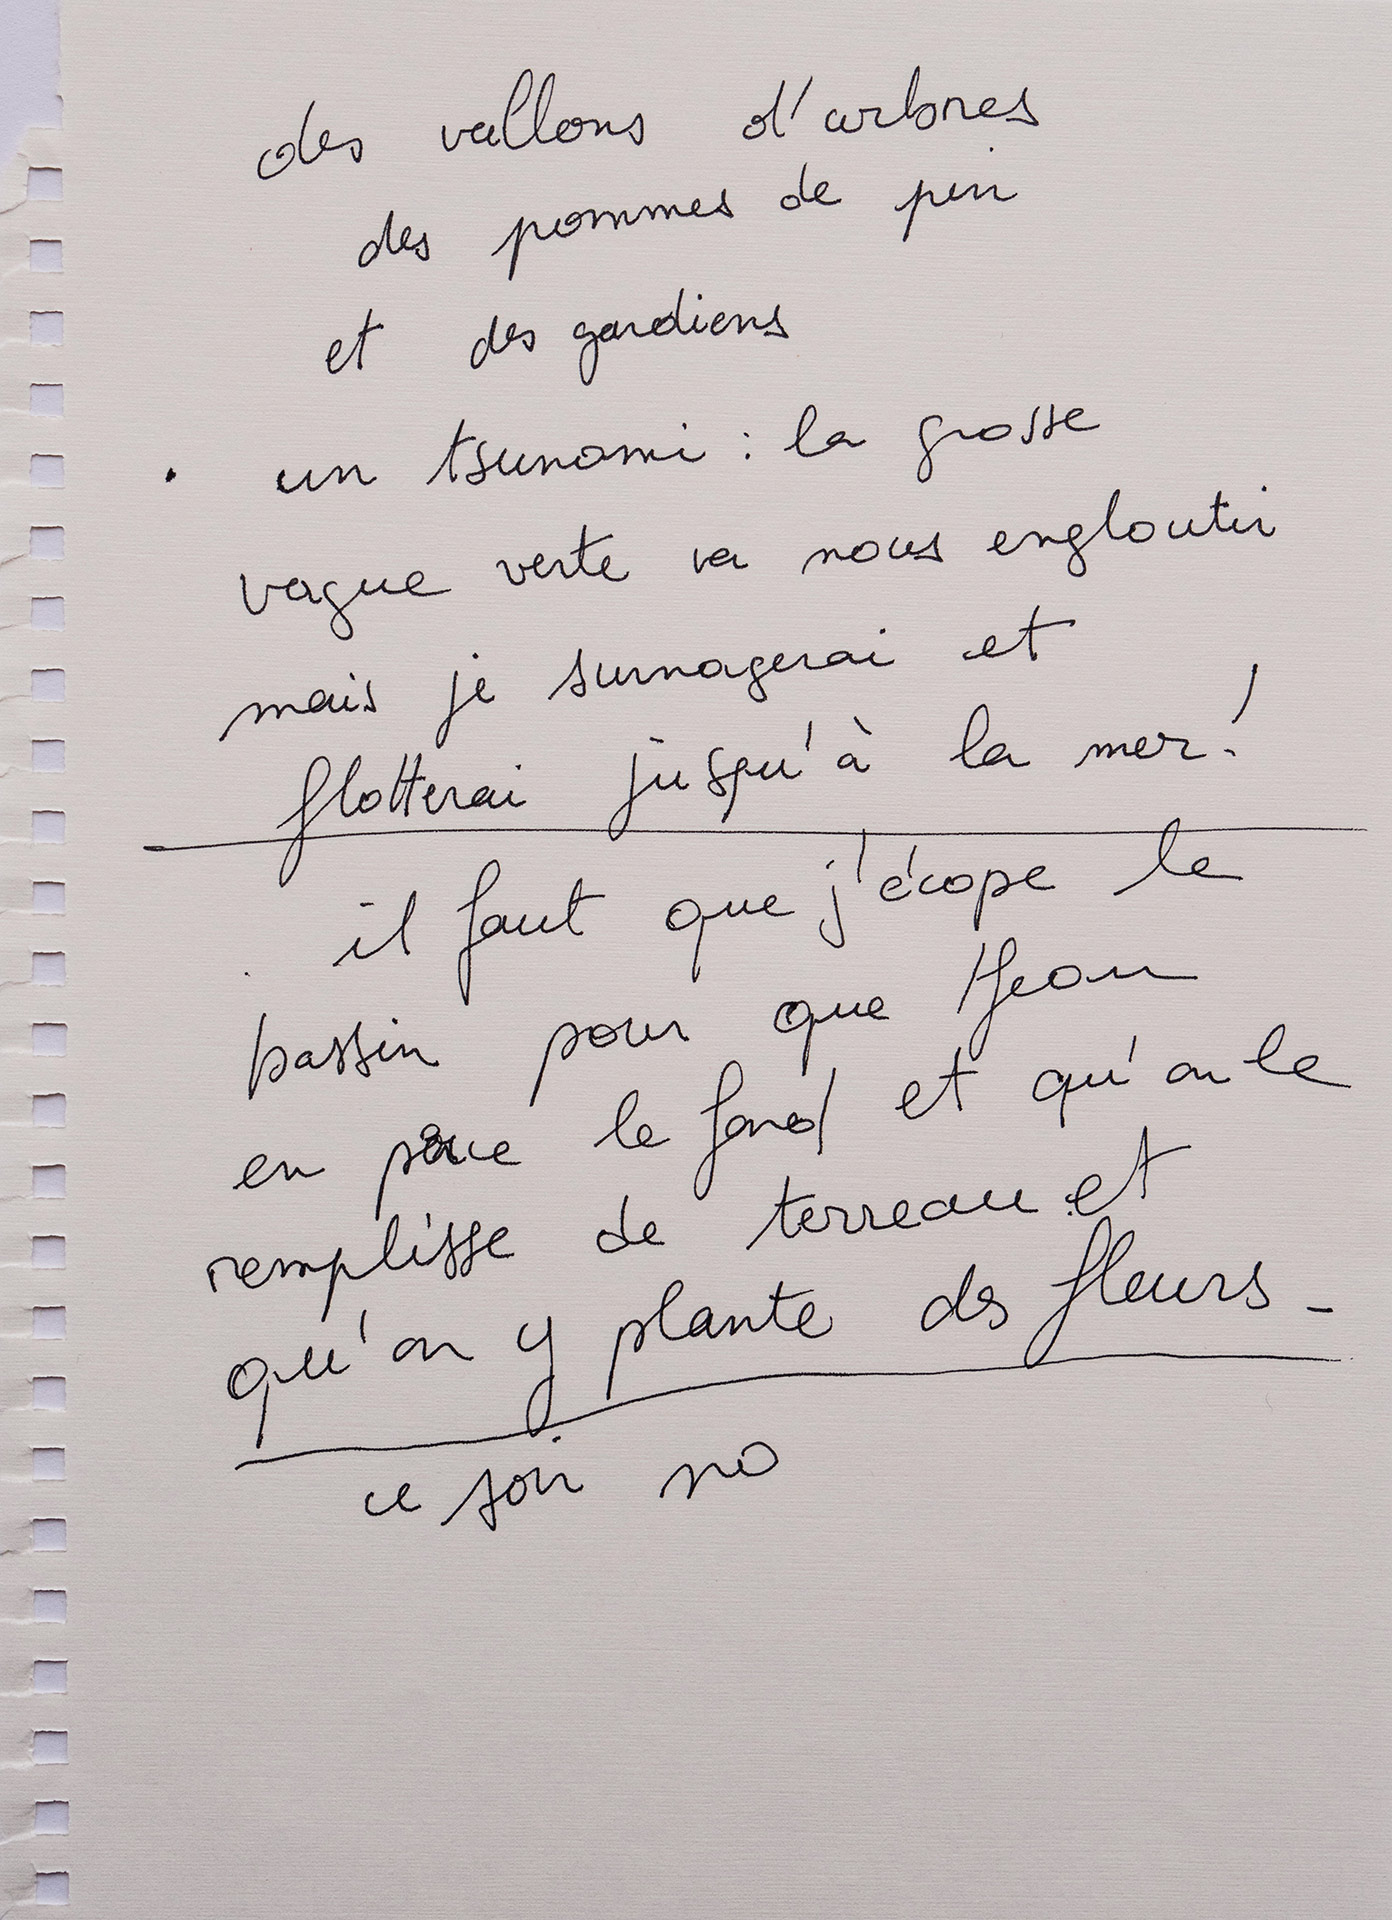 des vallons d'arbres
des pommes de pin
et des gardiens
. un tsunami : la grosse
vague verte va nous engloutir
mais je surnagerai et
flotterai jusqu'à la mer!
. il faut que j'écope le
bassin pour que Jean
en perce le fond et qu'on le
remplisse de terreau et
qu'on y plante des fleurs -
ce soir no